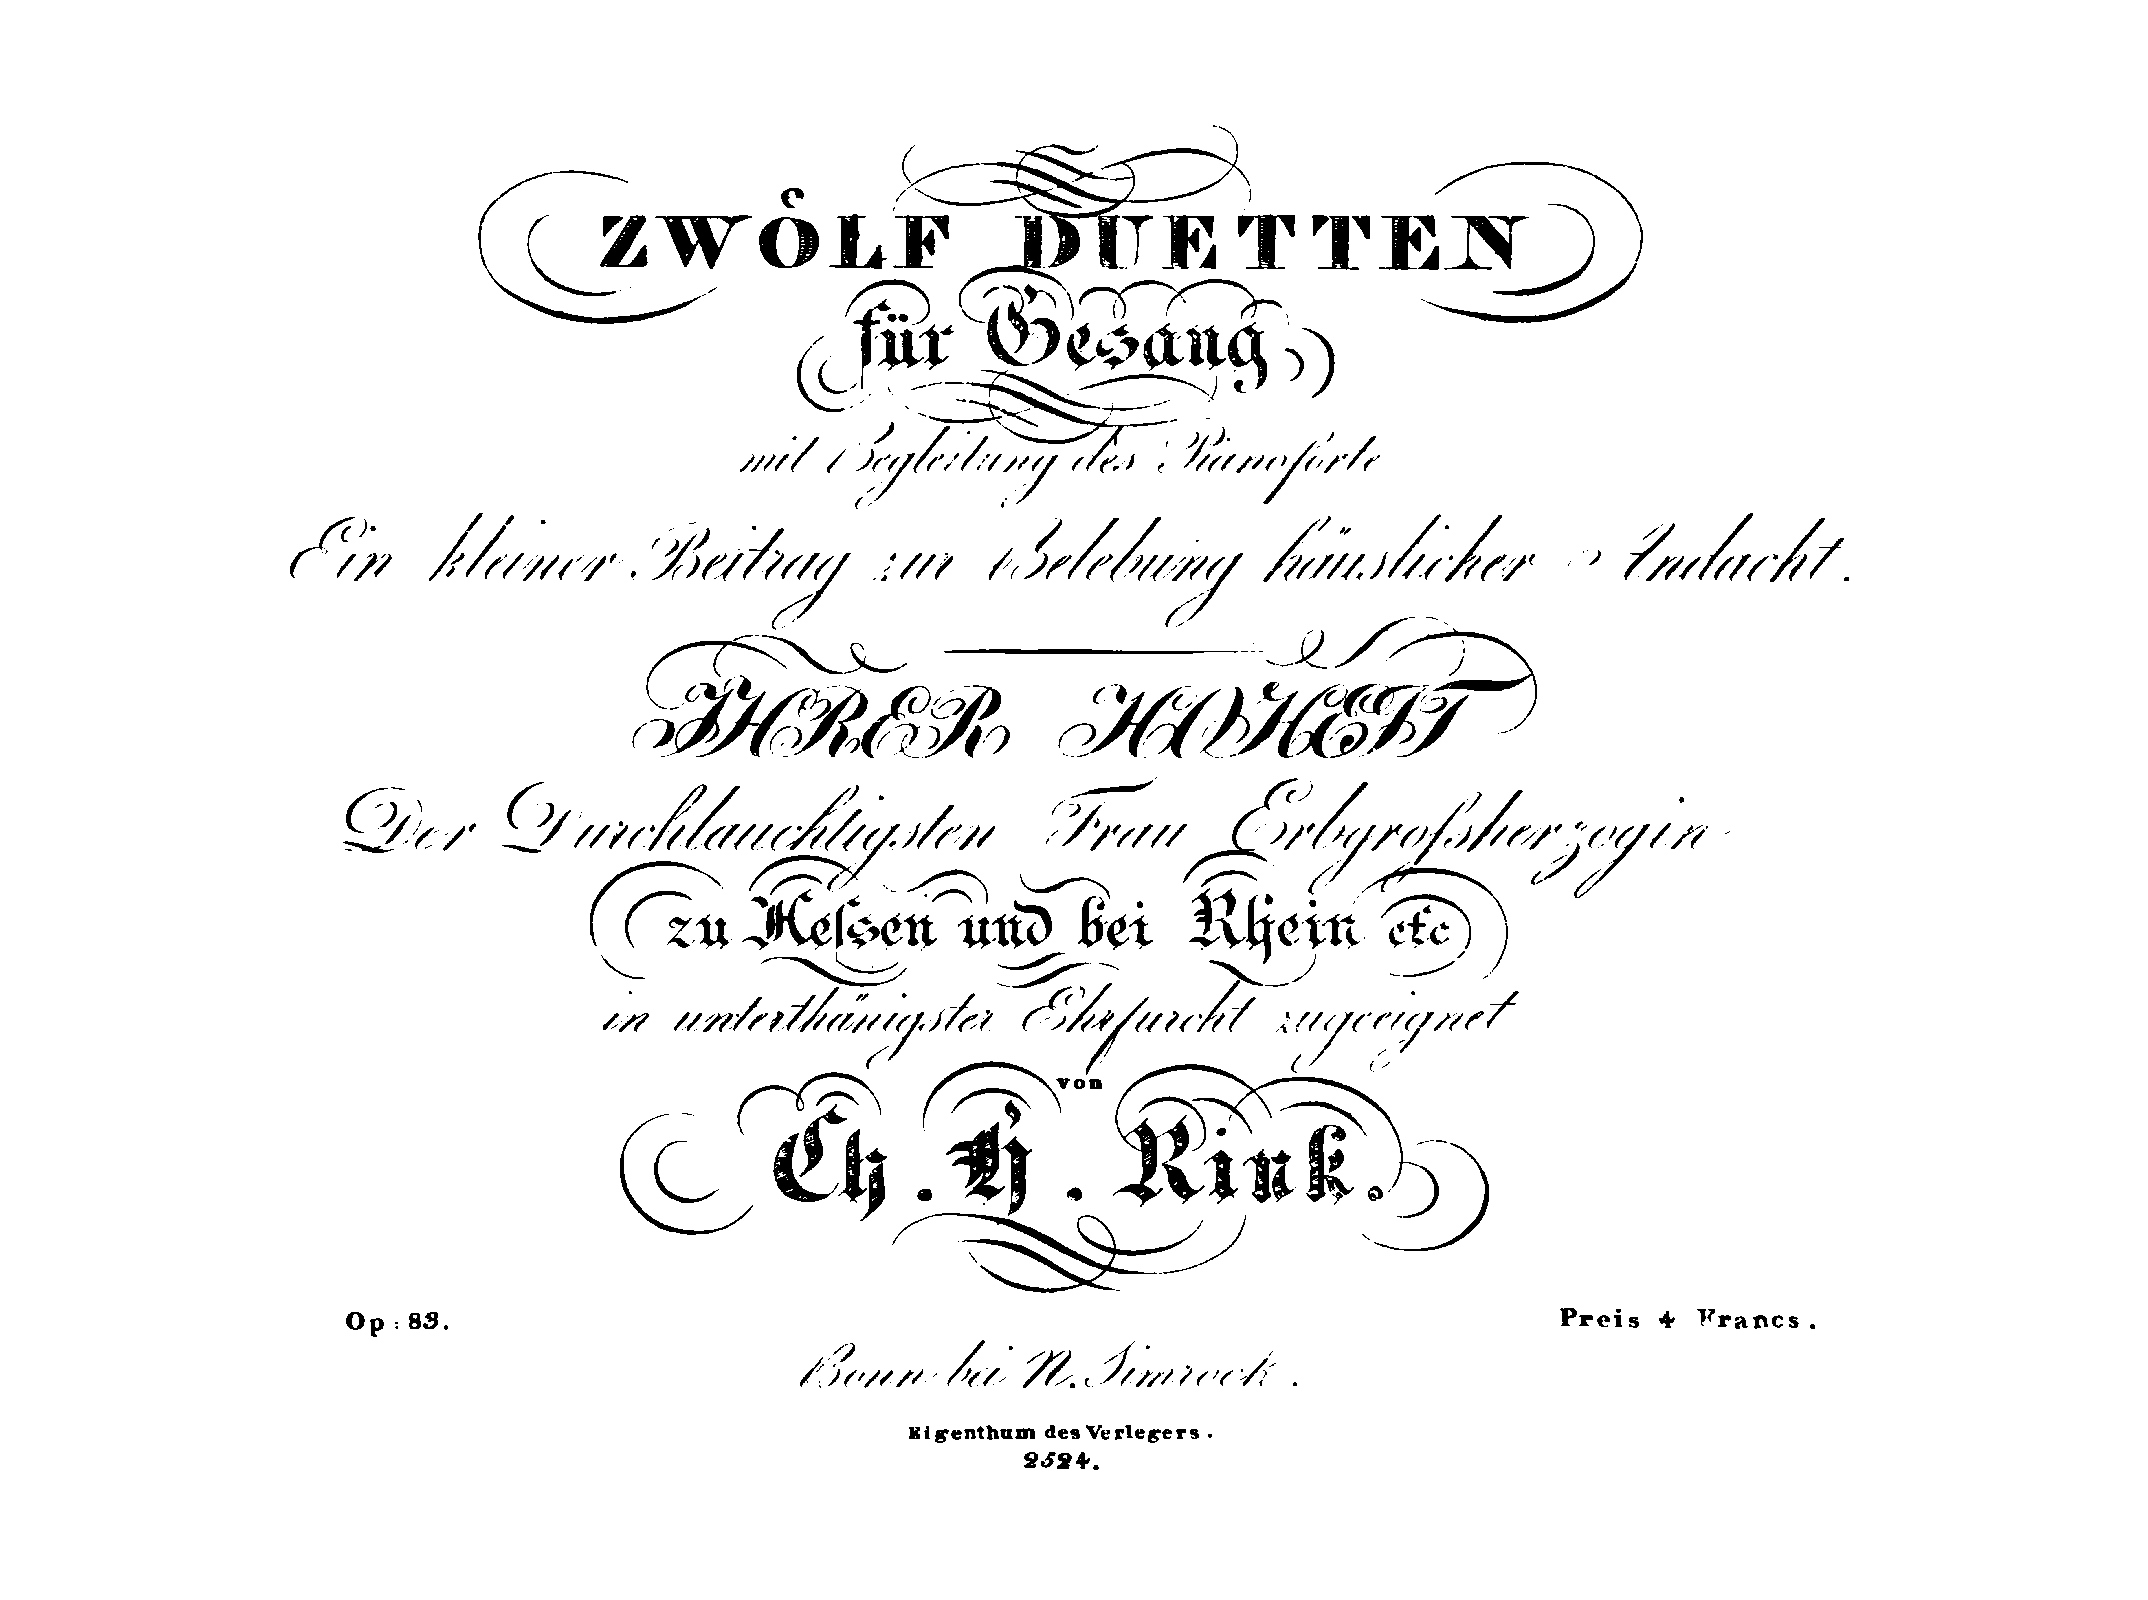 ZWÖLF DUETTEN
für Gesang
mit Begleitung des Pianoforte
Ein kleiner Beitrag zur Belebung häuslicher Andacht.
IHRER HOHEIT
Der Durchlauchtigsten Frau Erbgroſsherzogin
zu Heſsen und bei Rhein etc
in unterthänigster Ehrfurcht zugeeignet
von
Ch. H. Rink.
Op: 83. Preis 4 Francs.
Bonn bei N. Simrock.
Eigenthum des Verlegers.
2524.